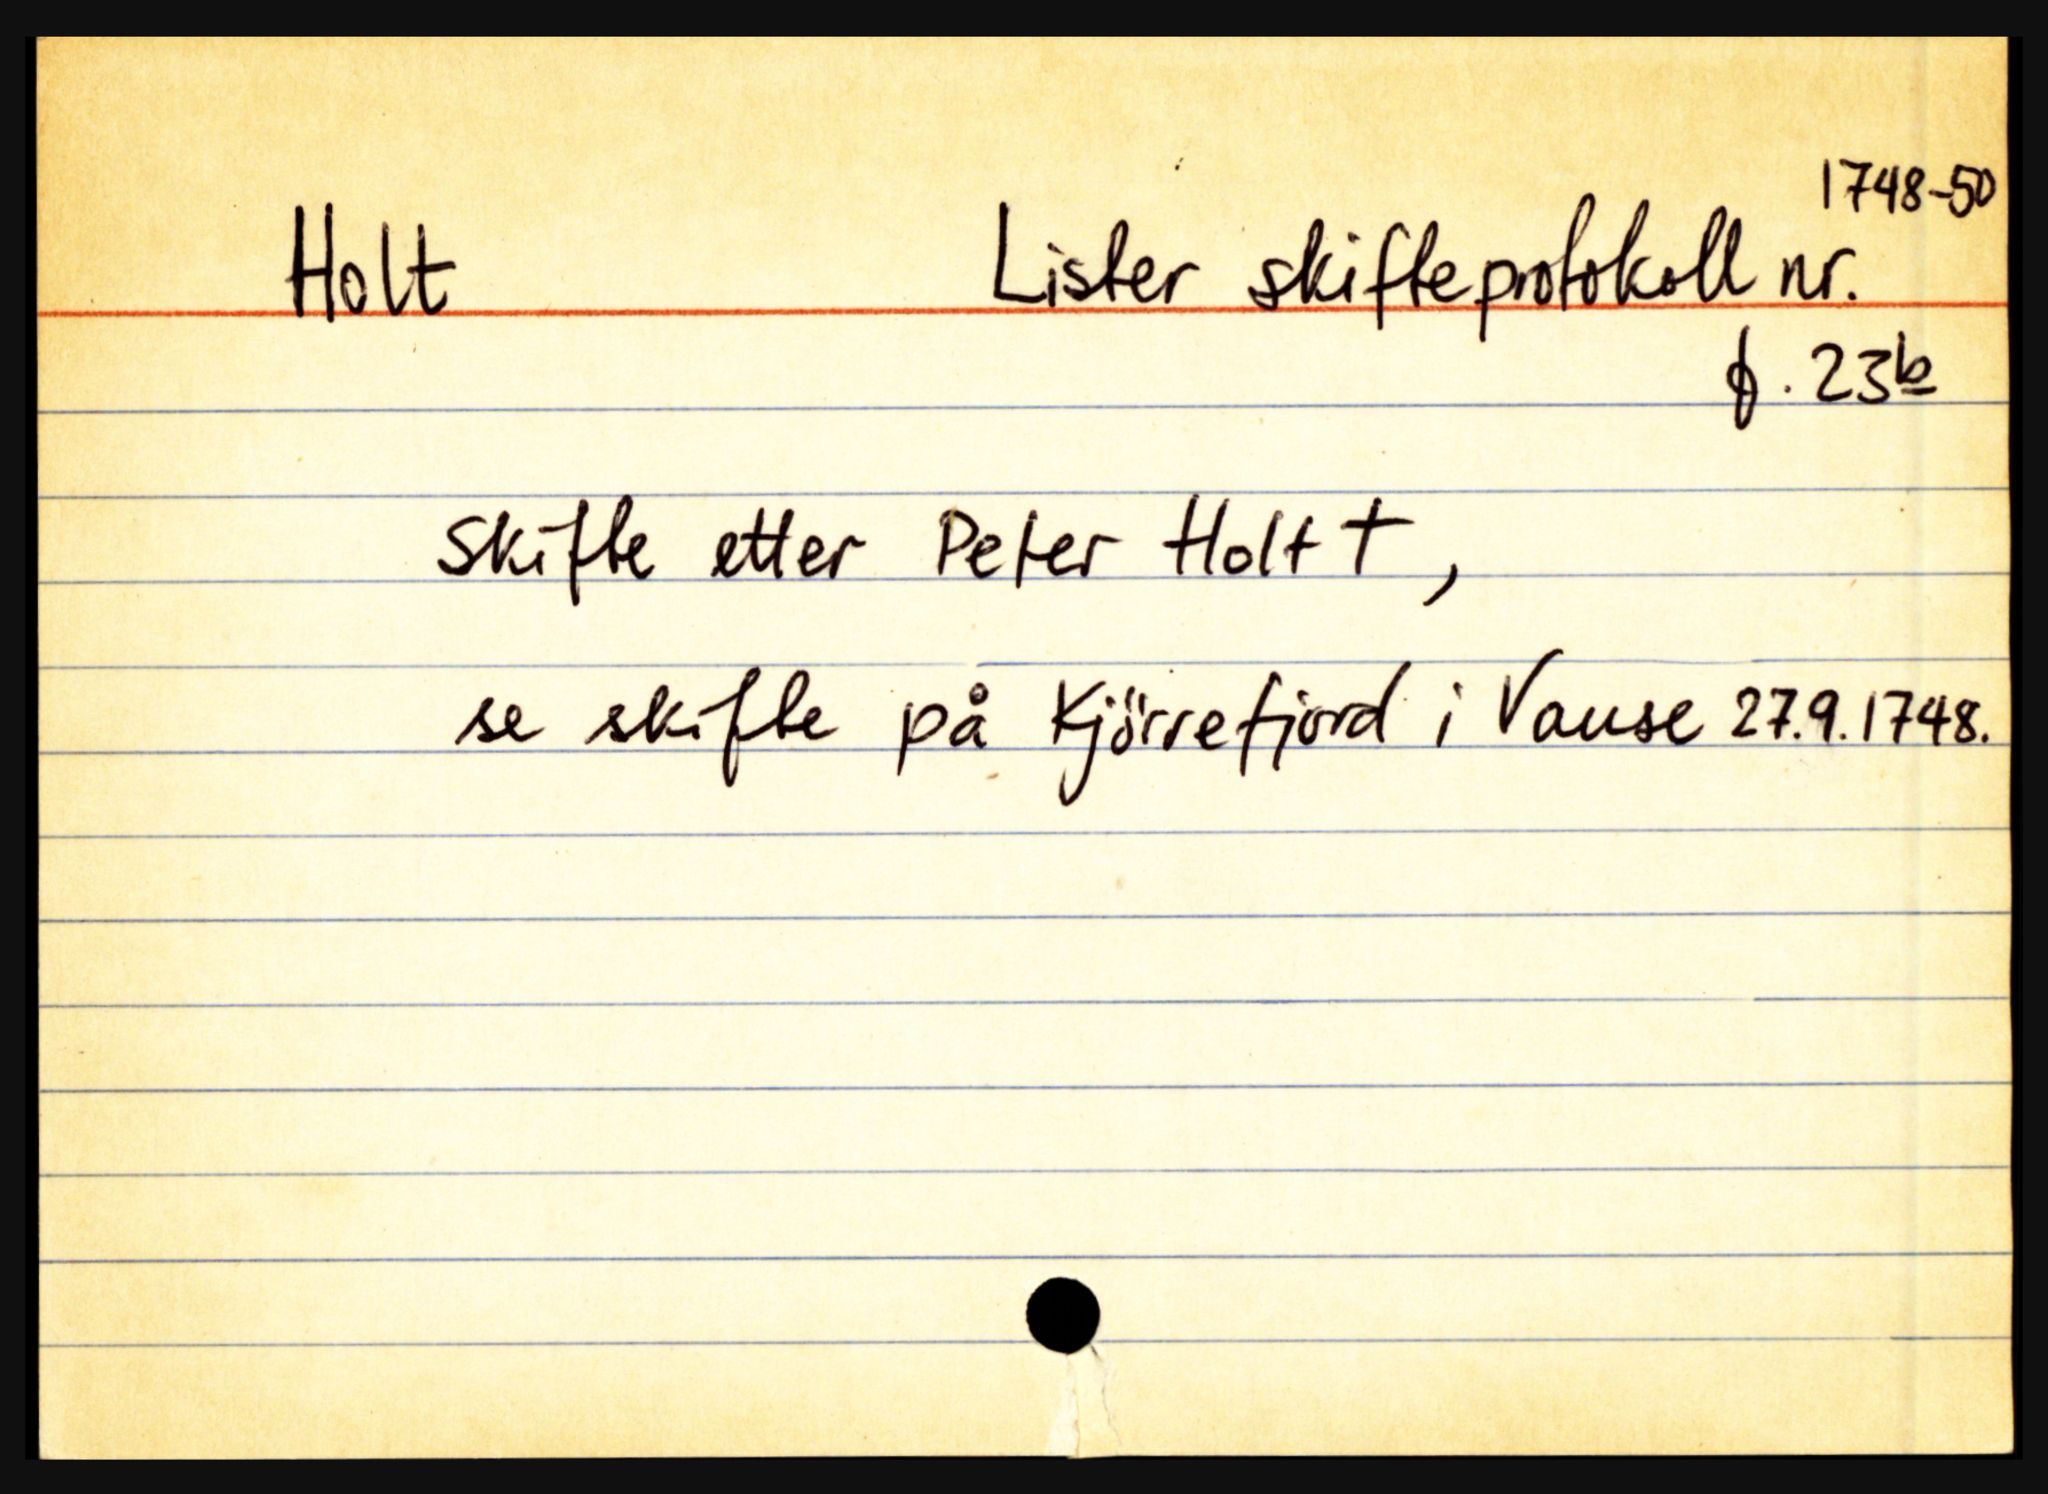 1748-50
Holt Lister skifteprotokoll nr.
f. 23b
Skifte etter Peter Holt †,
se skifte på Kjörrefjord i Vanse 27.9.1748.